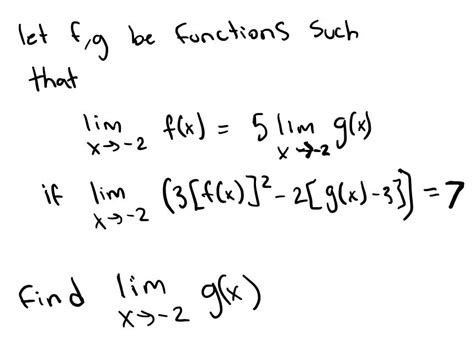 let f,g be functions such
that
lim x→-2 f(x) = 5 lim x→-2 g(x)
if lim x→-2 (3[f(x)]² - 2[g(x)-3]) = 7
find lim x→-2 g(x)